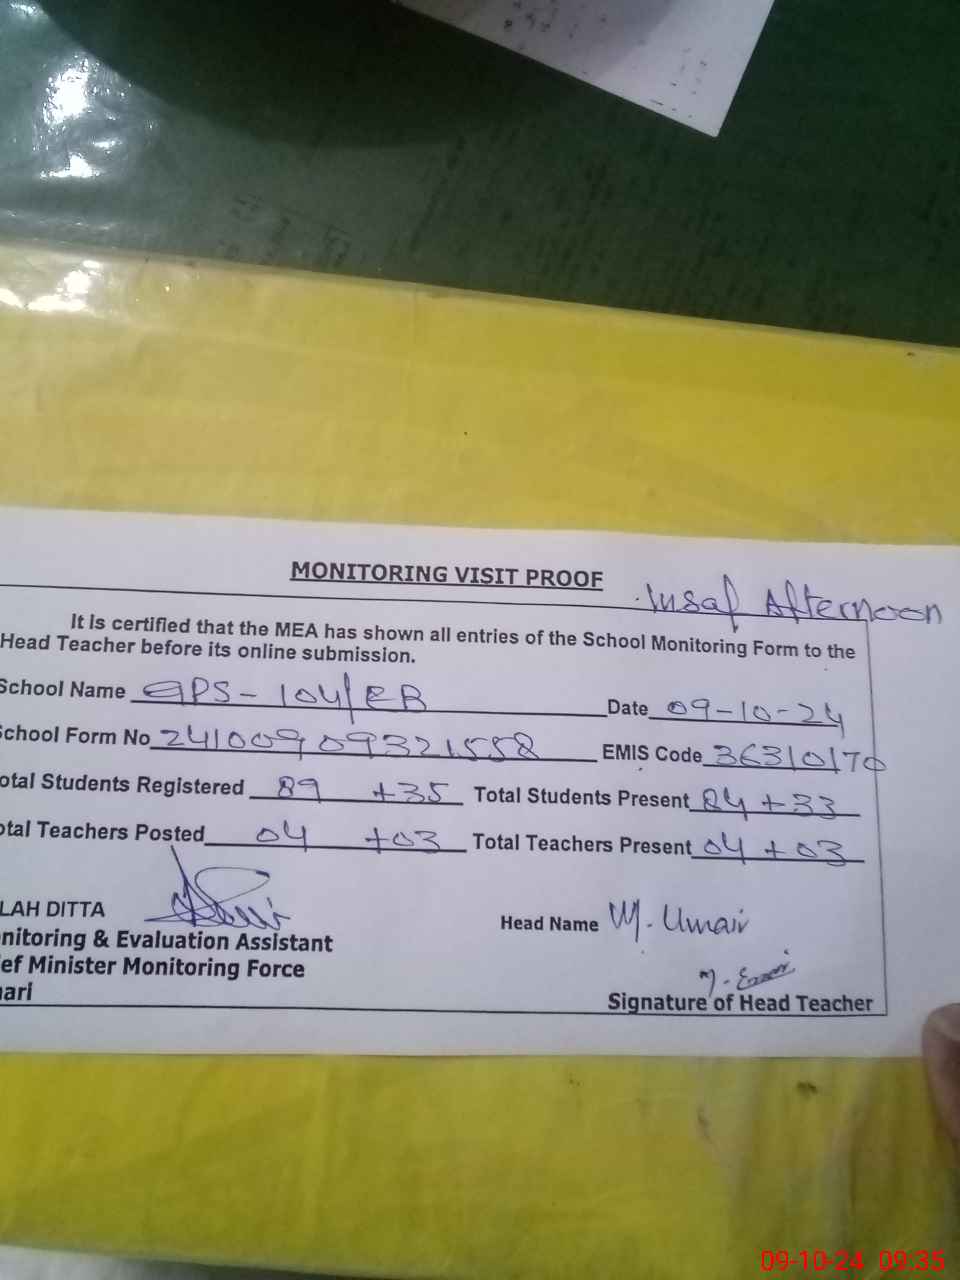 MONITORING VISIT PROOF
Insaf Afternoon
It is certified that the MEA has shown all entries of the School Monitoring Form to the
Head Teacher before its online submission.
School Name GPS-104/EB Date 09-10-24
School Form No 24100909321558 EMIS Code 36310170
otal Students Registered 89 +35 Total Students Present 84+33
otal Teachers Posted 04 +03 Total Teachers Present 04+03
LAH DITTA
Head Name M. Umair
nitoring & Evaluation Assistant
ef Minister Monitoring Force
ari
Signature of Head Teacher
09-10-24 09:35